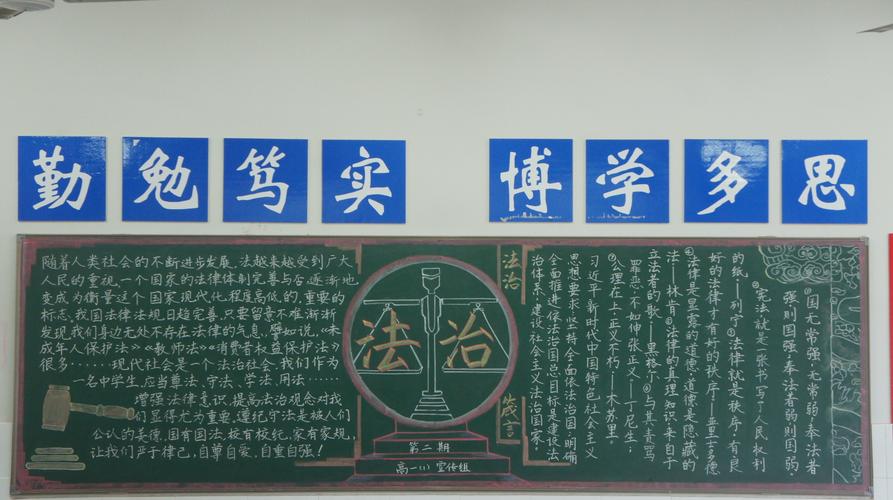 勤勉笃实 博学多思
随着人类社会的不断进步发展,法越来越受到广大
人民的重视,一个国家的法律体制完善与否,逐渐地
变成为衡量这个国家现代化程度高低的,重要的
标志,我国法律法规日趋完善,只要留意不难渐渐
发现,我们身边无处不存在法律的气息,譬如说,《未
成年人保护法》《教师法》《消费者权益保护法》
很多……现代社会是一个法治社会,我们作为
一名中学生,应当尊法、守法、学法、用法……
增强法律意识,提高法治观念对我
们显得尤为重要。遵纪守法是被人们
公认的美德,国有国法,校有校纪,家有家规,
让我们严于律己,自尊自爱,自重自强!
法治
第二期
高一(1)宣传组
法治
箴言
①国无常强,无常弱,奉法者
强则国强,奉法者弱则国弱。
②宪法就是一张书写了人民权利
的纸—列宁③法律就是秩序,有良
好的法律才有好的秩序—亚里士多德
④法律是显露的道德,道德是隐藏的
法律—林肯⑤法律的真理知识,来自于
立法者的教—黑格尔⑥与其责骂
罪恶,不如伸张正义—丁尼生;
⑦公理在上,正义不朽—木苏里。
习近平新时代中国特色社会主义
思想要求,坚持全面依法治国,明确
全面推进依法治国总目标是建设法
治体系,建设社会主义法治国家。